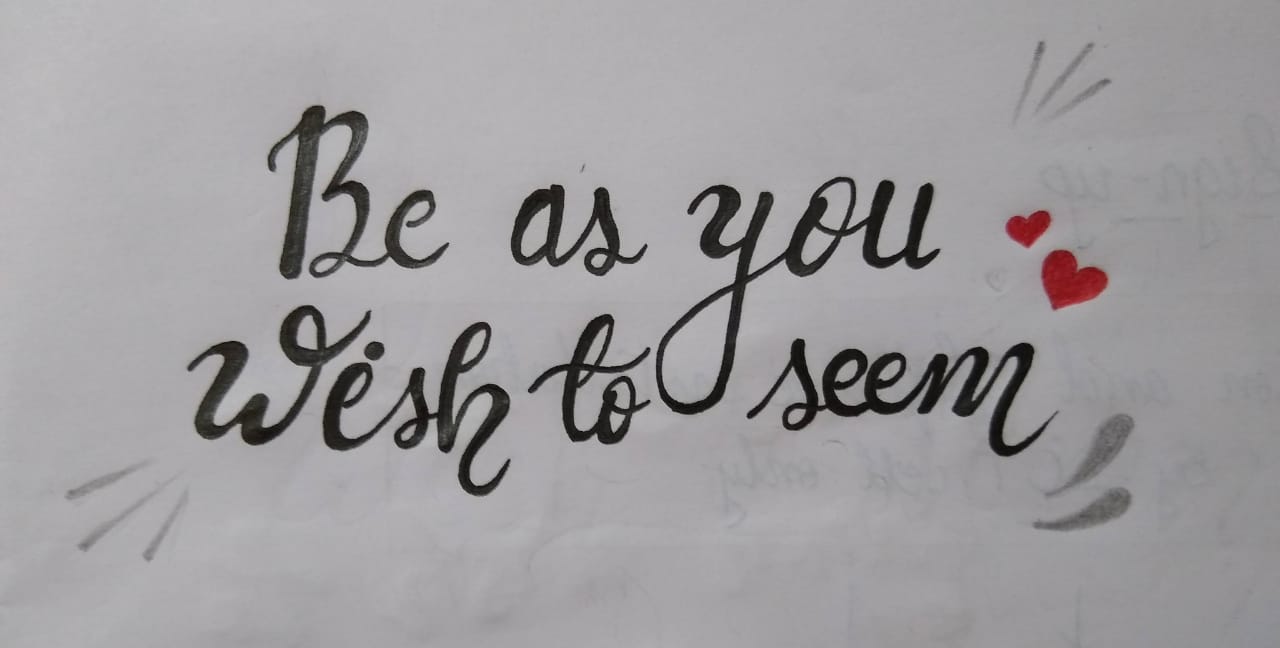 Be as you
Wish to seem